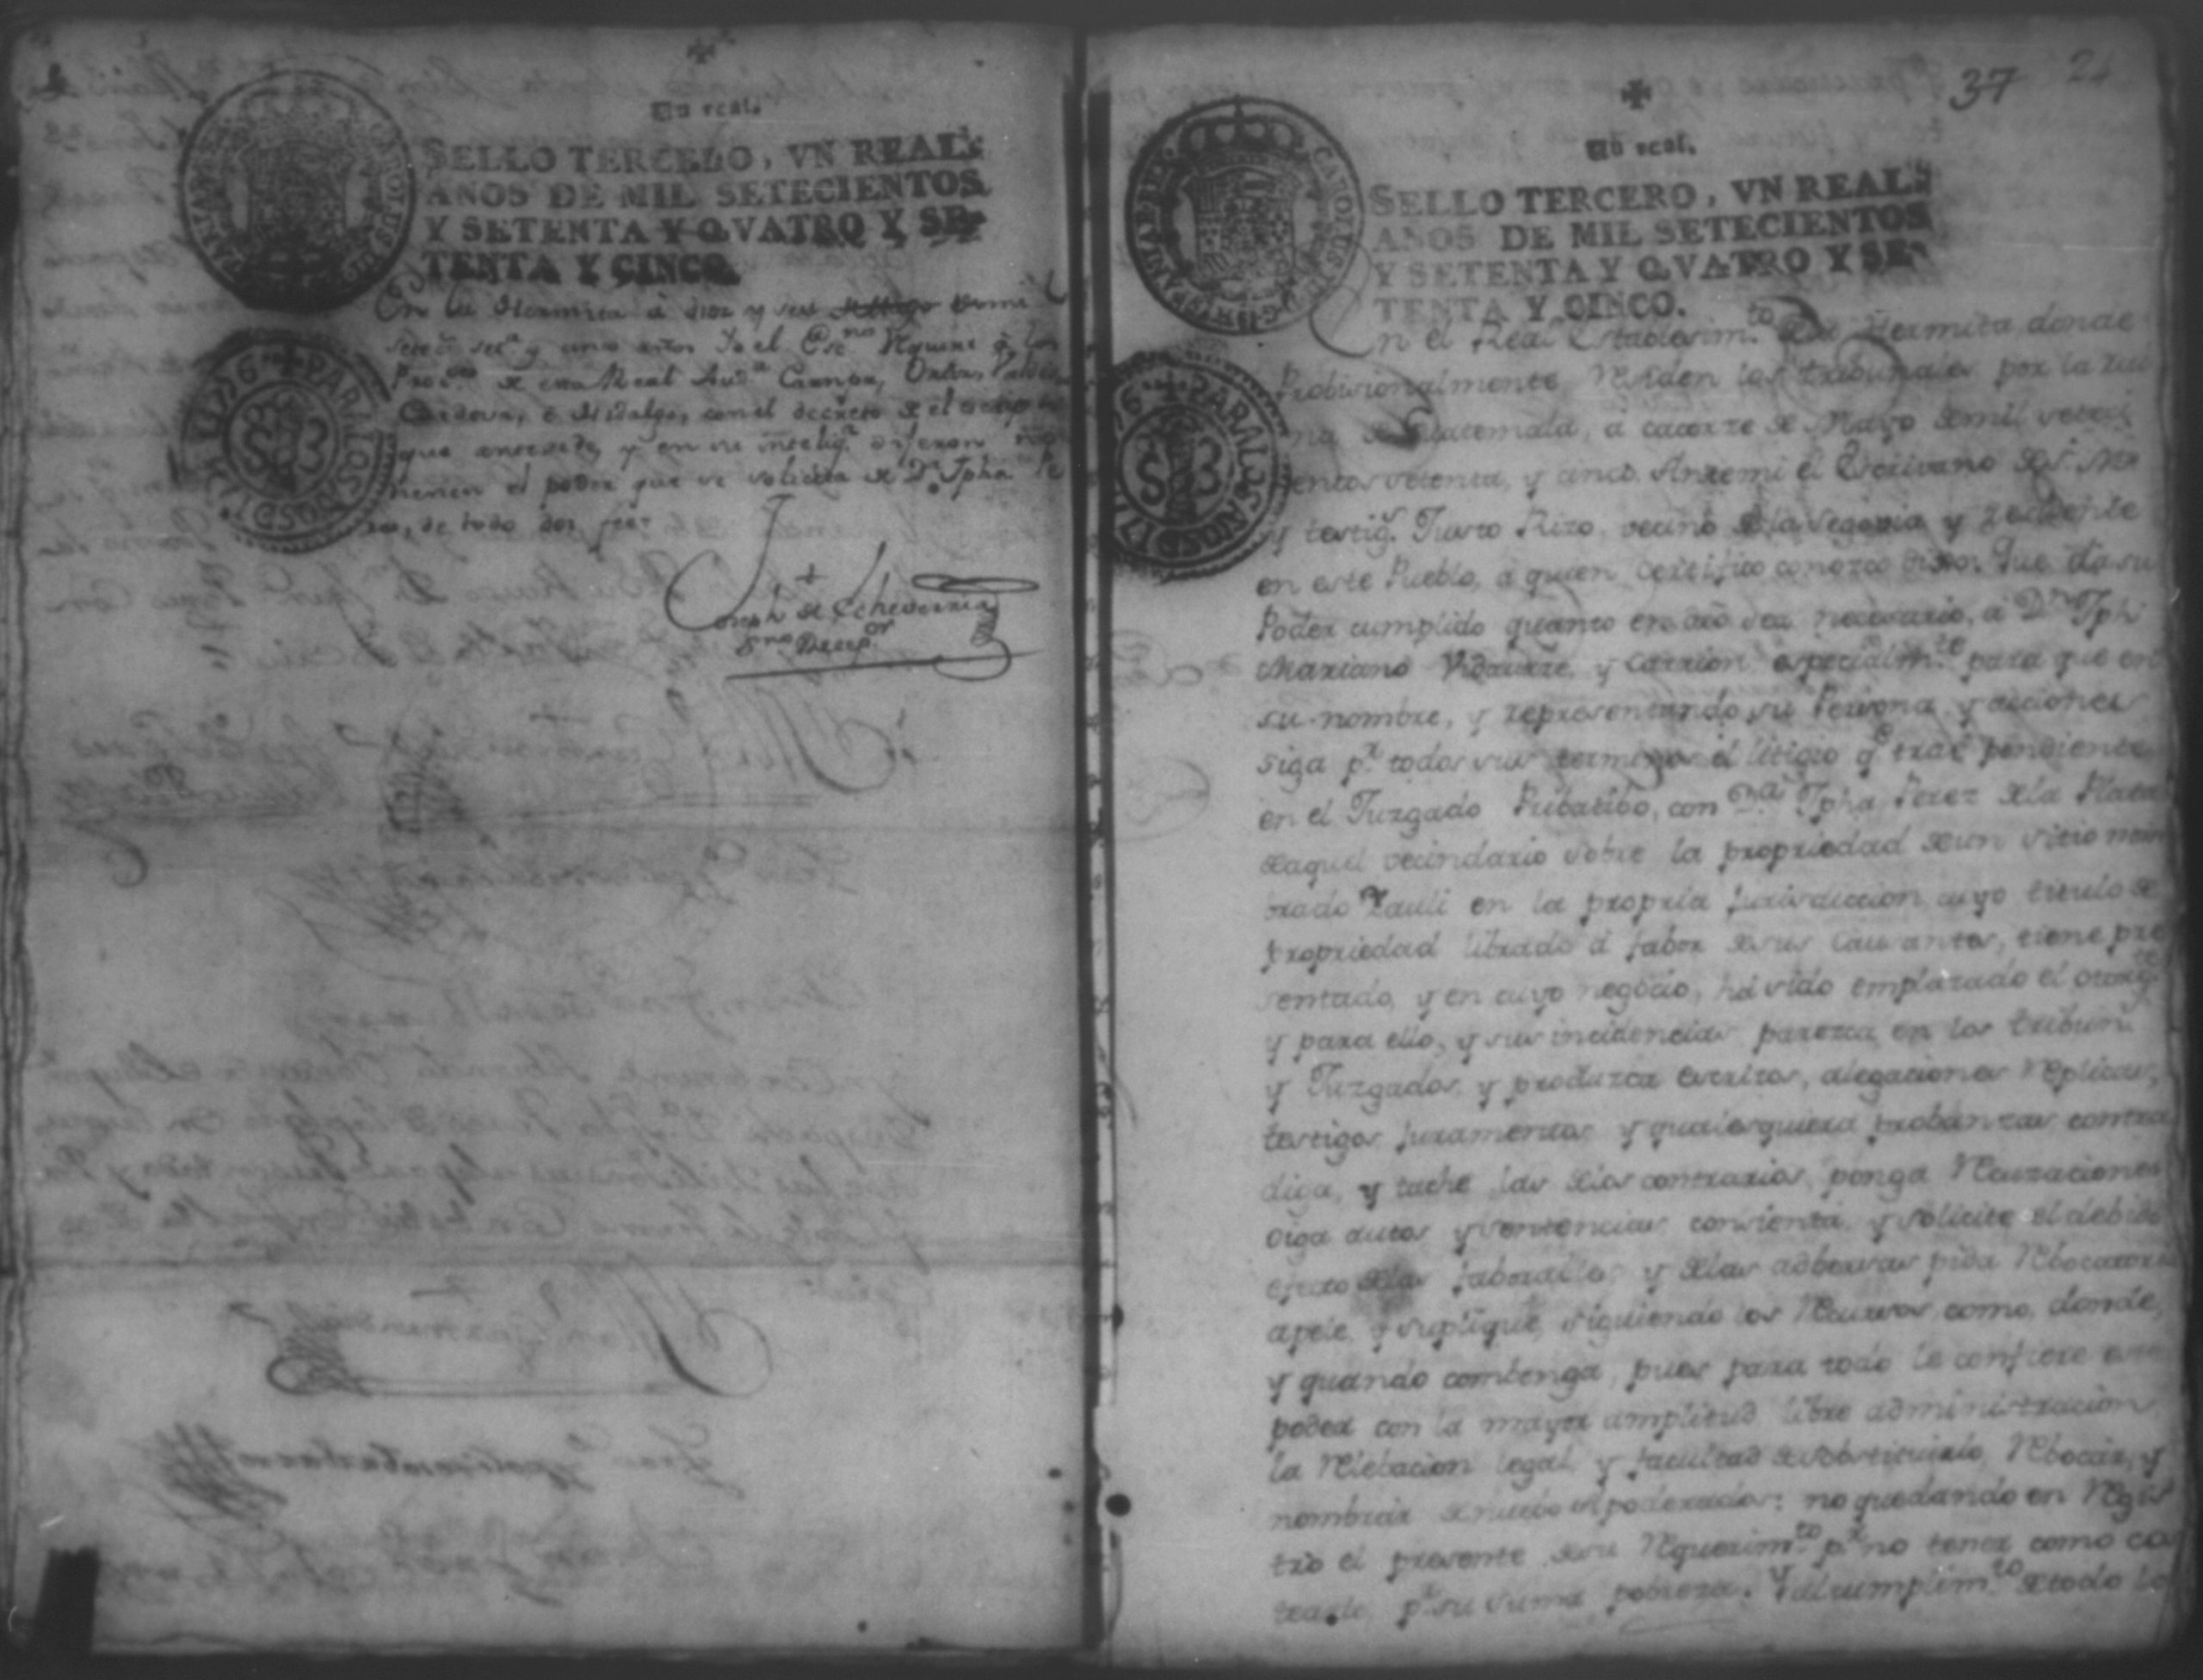 Un real.
SELLO TERCERO, VN REAL:
AÑOS DE MIL SETECIENTOS
Y SETENTA Y QVATRO Y SE-
TENTA Y CINCO.
En la Hermita à diez y seis de Mayo de mil
setec.s set.a y cinco años Yo el Esc.no Requeri à los
Proc.res de esta Real Aud.a Campo, Ortiz, Valdes
Cordova, è Hidalgo, con el decreto de el
que antecede, y en su intelig.a dijeron no
tienen el poder que se solicita de D.a Jpha Pe
rez, de todo doy fee
Joseph de Echeverria
Sno Recep.or
PARA LOS AÑOS D 1776
37
Un real.
SELLO TERCERO, VN REAL:
AÑOS DE MIL SETECIENTOS
Y SETENTA Y QVATRO Y SE-
TENTA Y CINCO.
CAROLUS
PARA LOS AÑOS D 1776
En el Real Establesim.to de la Hermita, donde
Probisionalmente Residen los tribunales por la rui
na de Guatemala, à catorze de Mayo de mil seteci
entos setenta, y cinco. Antemi el Escrivano de S. M.
y testig.s Justo Rizo, vecino de la Segovia y recidente
en este Pueblo, à quien certifico conozco dijo: Que da su
Poder cumplido quanto en dro sea necesario, à D.n Jph
Mariano Vidaurre, y Carrion especialm.te para que en
su nombre, y representando su Persona, y acciones
siga p.r todos sus terminos el litigio q.e trae pendiente
en el Juzgado Pribatibo, con D.a Jpha Perez de la Plata
de aquel vecindario sobre la propriedad de un sitio nom
brado Zauli en la propria jurisdiccion, cuyo titulo de
propriedad librado à fabor de sus Causantes, tiene pre
sentado, y en cuyo negocio, ha sido emplazado el otorg.te
y para ello, y sus incidencias paresca en los tribun.s
y Juzgados, y produzca escritos, alegaciones Replicas,
testigos juramentos y qualesquiera probanzas contra
diga, y tache las de los contrarios, ponga Recuzaciones
oiga autos y sentencias consienta, y solicite el debido
efecto de las faborables y de las adbersas pida Rebocatoria
apele, y suplique, siguiendo los Recursos, como, donde,
y quando combenga, pues para todo le confiere este
poder con la mayor amplitud libre administracion
la Relebacion legal, y facultad de substituirlo, Rebocar, y
nombrar de nuebo Apoderados: no quedando en Regis
tro el presente de su Requerim.to p.r no tener como cos
tearlo, p.r su suma pobreza. Y al cumplim.to de todo lo